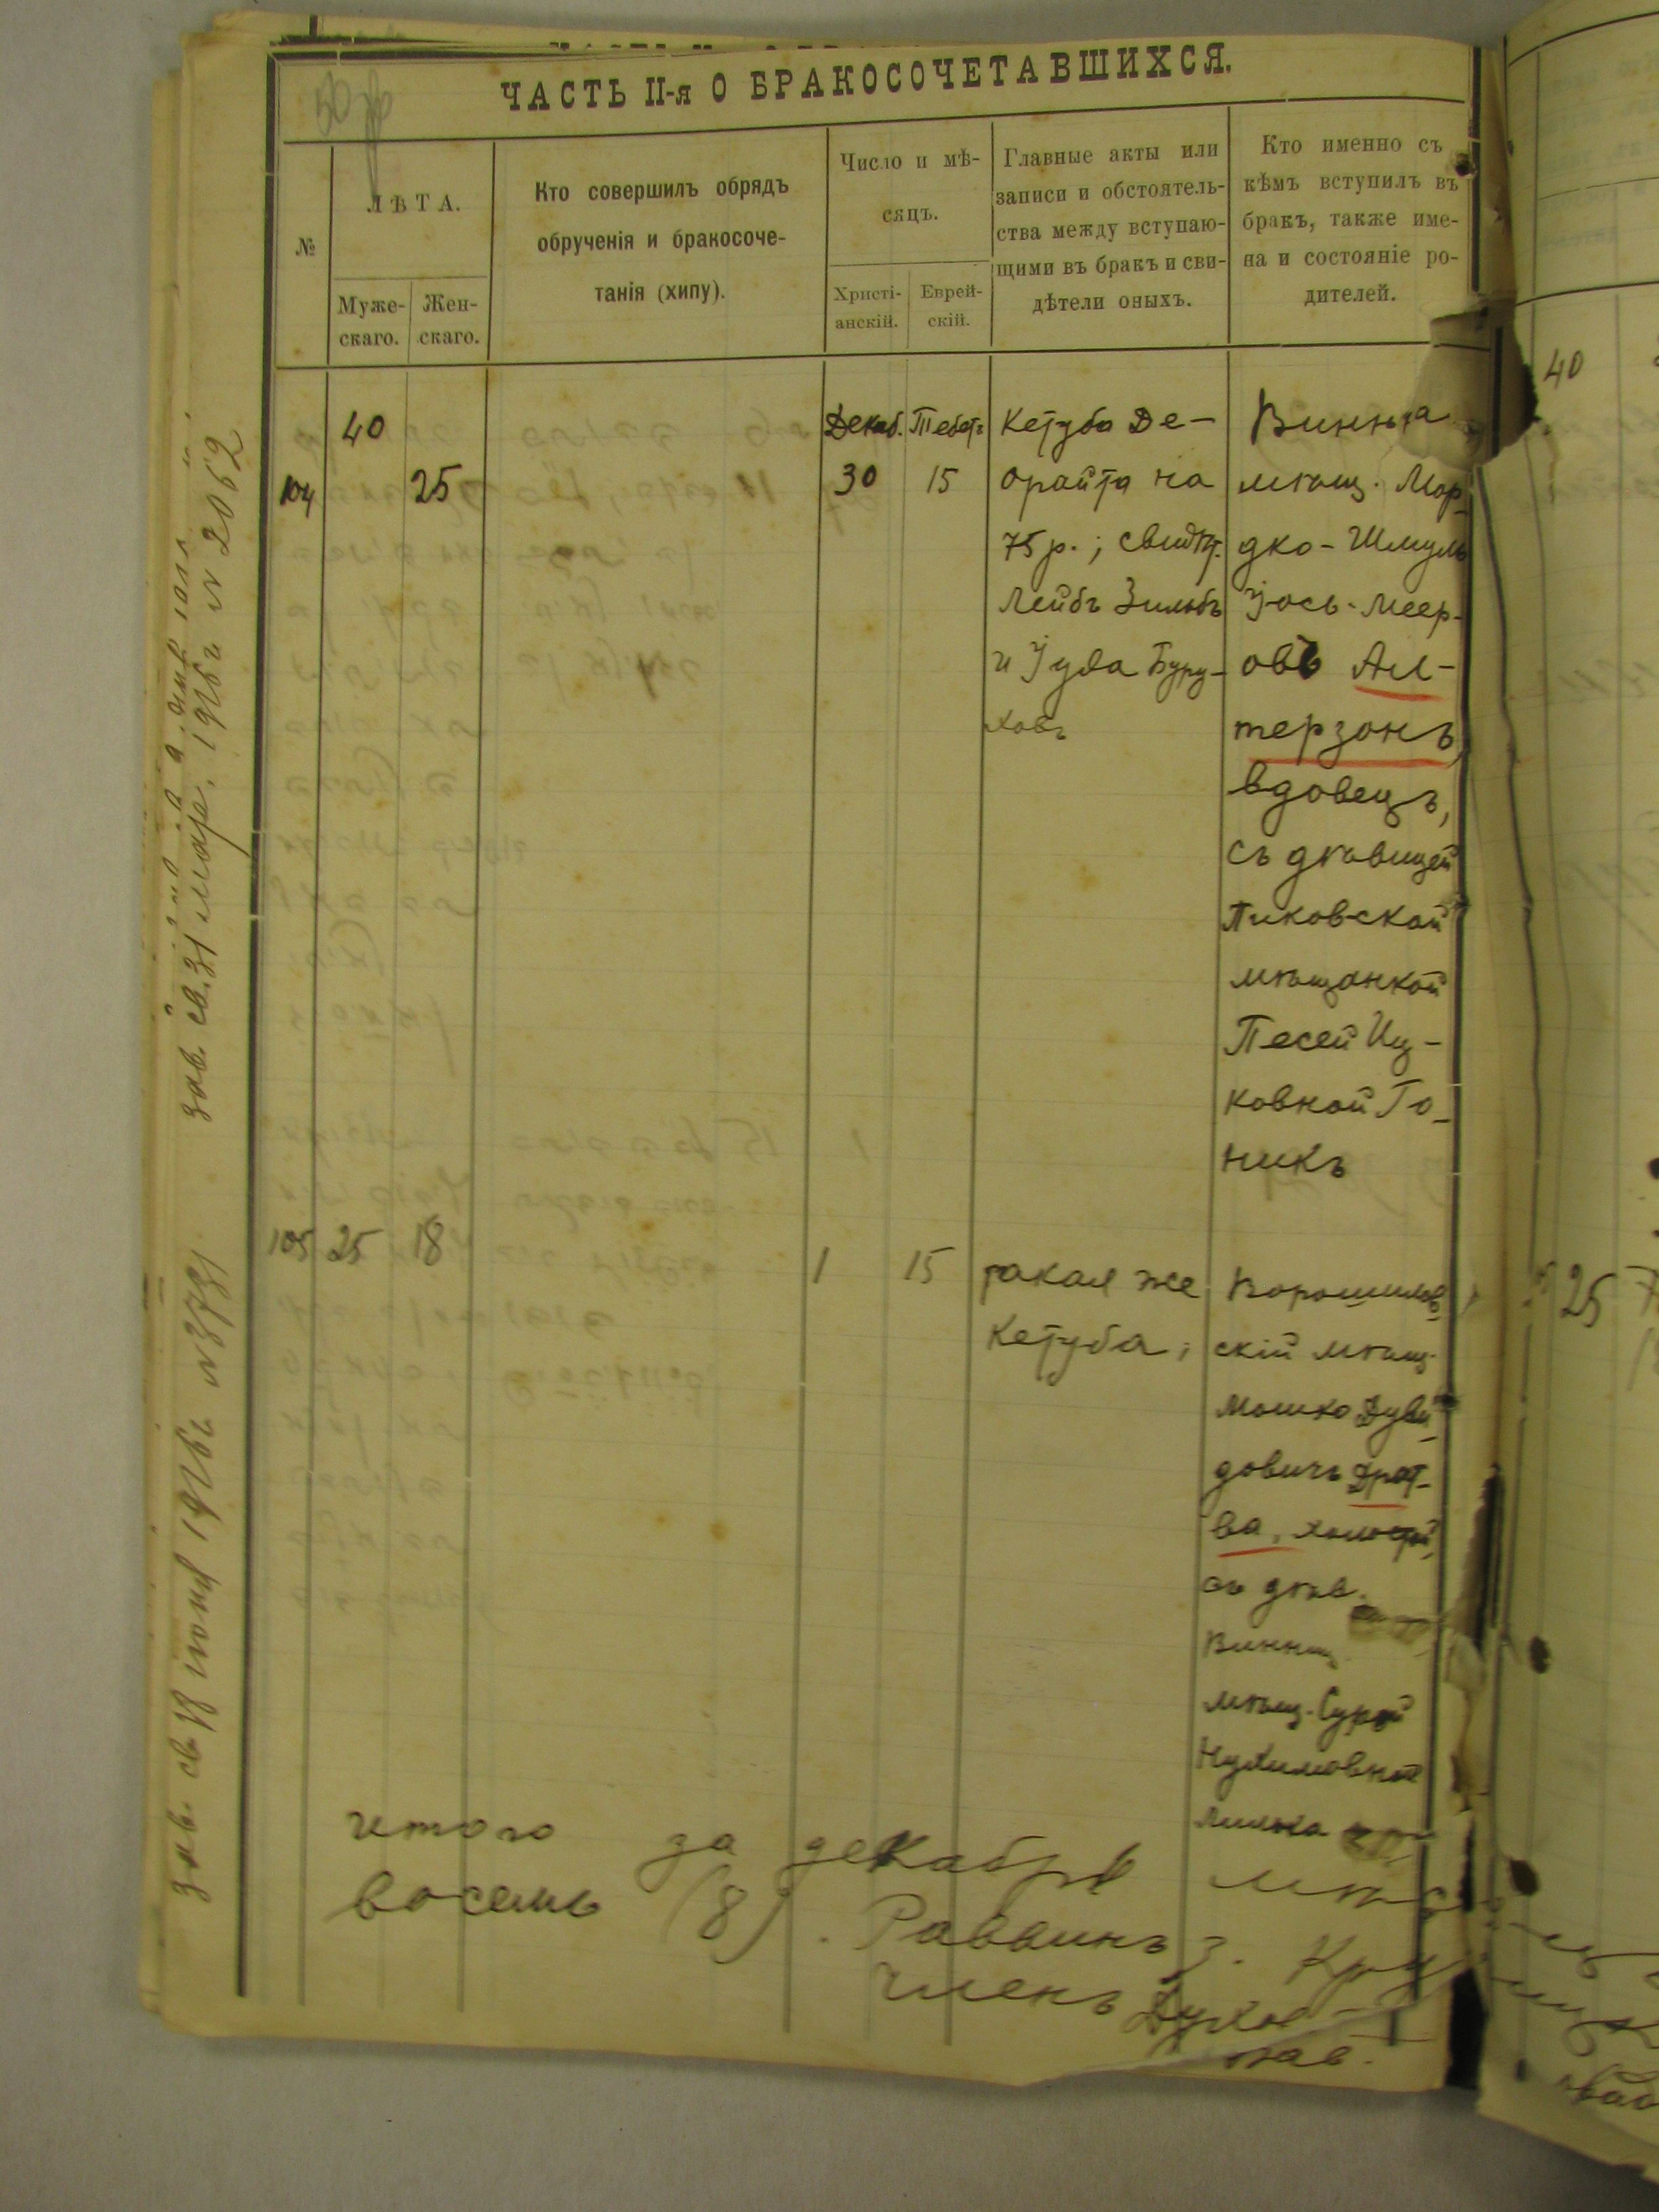 ЧАСТЬ II-я О БРАКОСОЧЕТАВШИХСЯ.
№
ЛѢТА.
Муже-
скаго.
Жен-
скаго.
Кто совершилъ обрядъ
обрученія и бракосоче-
танія (хипу).
Число и мѣ-
сяцъ.
Христі-
анскій.
Еврей-
скій.
Главные акты или
записи и обстоятель-
ства между вступаю-
щими въ бракъ и сви-
дѣтели оныхъ.
Кто именно съ
кѣмъ вступилъ въ
бракъ, также име-
на и состояніе ро-
дителей.
104
40
25
Декаб.
30
Тебетъ
15
Кетуба Де-
орайта на
75 р.; свидѣт.
Лейбъ Зильбъ
и Іуда Буру-
ховъ
мѣщ. Мор-
дко-Шмуль
Іось-Меер-
овъ Ал-
терзонъ
вдовецъ,
съ дѣвицей
Пиковской
мѣщанкой
Песей Иц-
ковной Го-
никъ
105
25
18
1
15
такая же
Кетуба;
Ворошилов
скій мѣщ.
Мошко Дуви-
довичъ Драт-
ва, холостой
съ дѣв.
Винниц.
мѣщ. Сурой
Нухимовной
итого за декабрь
восемь (8). Раввинъ З.
Членъ Духов-
40
25
зав. св. 31 мар. 1926 г. N 2062
зав. св. 18 іюня 1926 г. N 3731